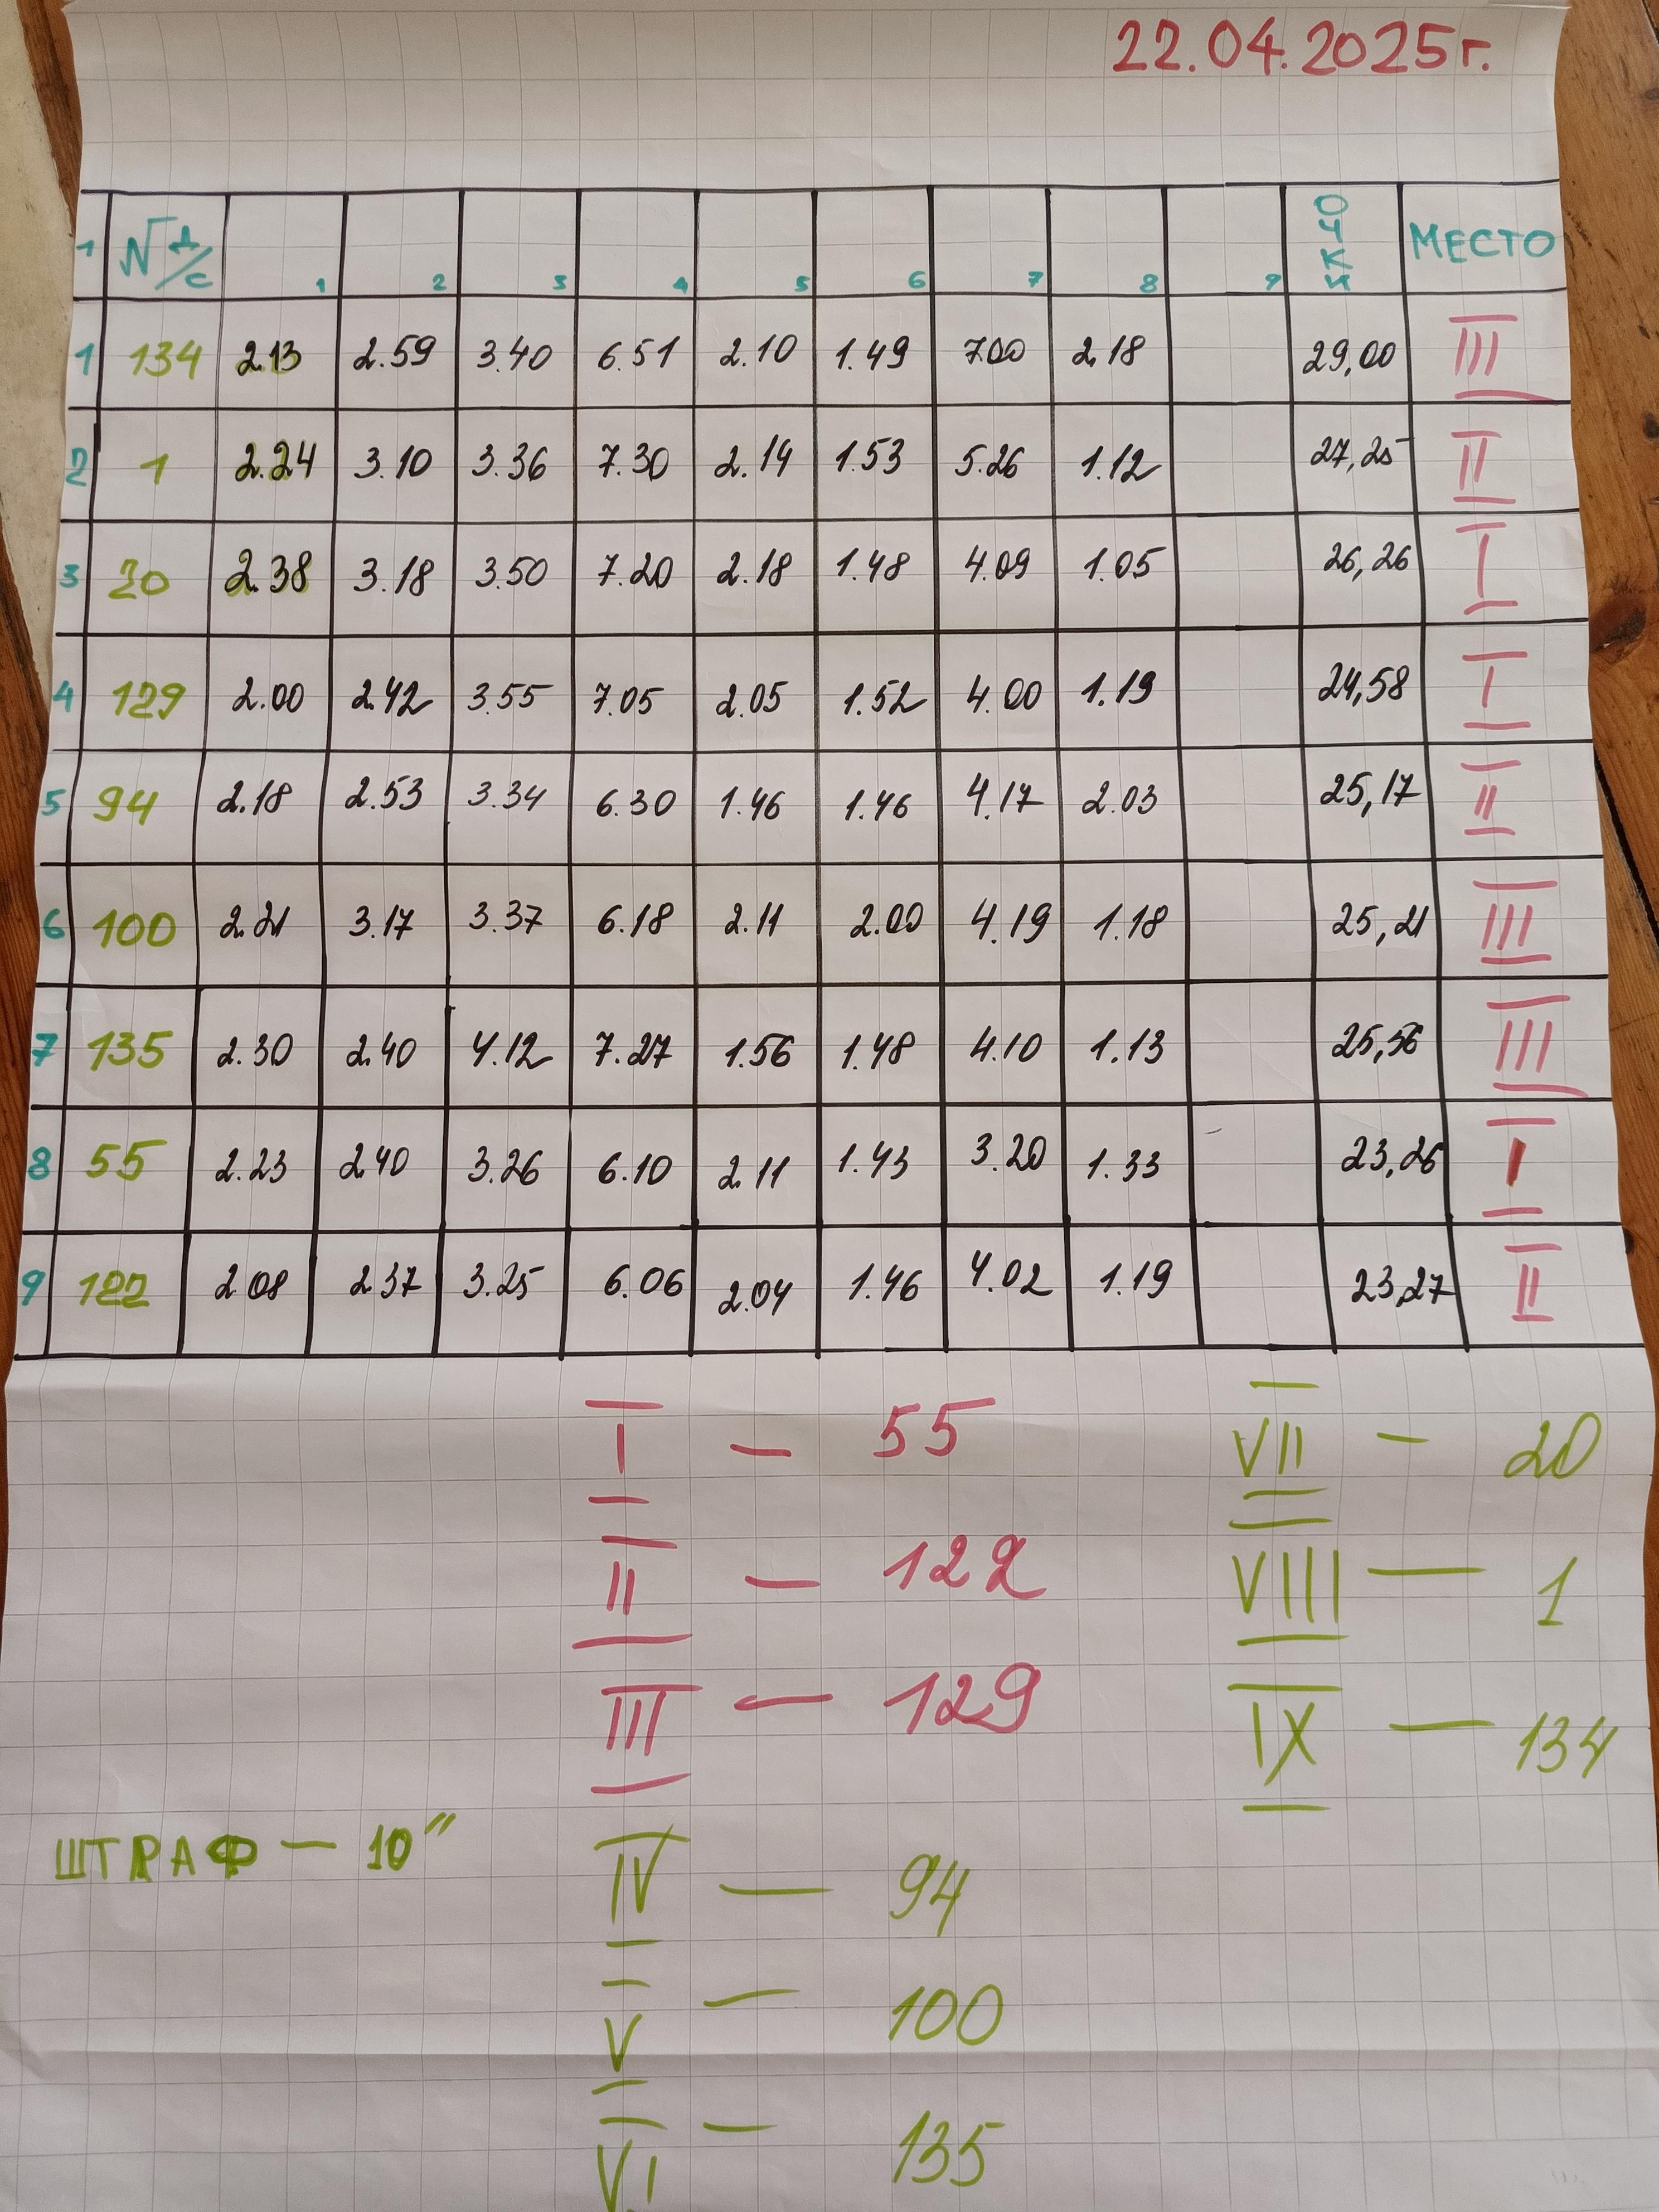 22.04.2025г.
1 № Д/С 1 2 3 4 5 6 7 8 9 ОЧКИ МЕСТО
1 134 2.13 2.59 3.40 6.51 2.10 1.49 7.00 2.18 29,00 III
2 1 2.24 3.10 3.36 7.30 2.14 1.53 5.26 1.12 27,25 II
3 20 2.38 3.18 3.50 7.20 2.18 1.48 4.09 1.05 26,26 I
4 129 2.00 2.42 3.55 7.05 2.05 1.52 4.00 1.19 24,58 I
5 94 2.18 2.53 3.34 6.30 1.46 1.46 4.17 2.03 25,17 II
6 100 2.21 3.17 3.37 6.18 2.11 2.00 4.19 1.18 25,21 III
7 135 2.30 2.40 4.12 7.27 1.56 1.48 4.10 1.13 25,56 III
8 55 2.23 2.40 3.26 6.10 2.11 1.43 3.20 1.33 23,26 I
9 122 2.08 2.37 3.25 6.06 2.04 1.46 4.02 1.19 23,27 II
I — 55
II — 122
III — 129
IV — 94
V — 100
VI — 135
VII — 20
VIII — 1
IX — 134
ШТРАФ — 10"